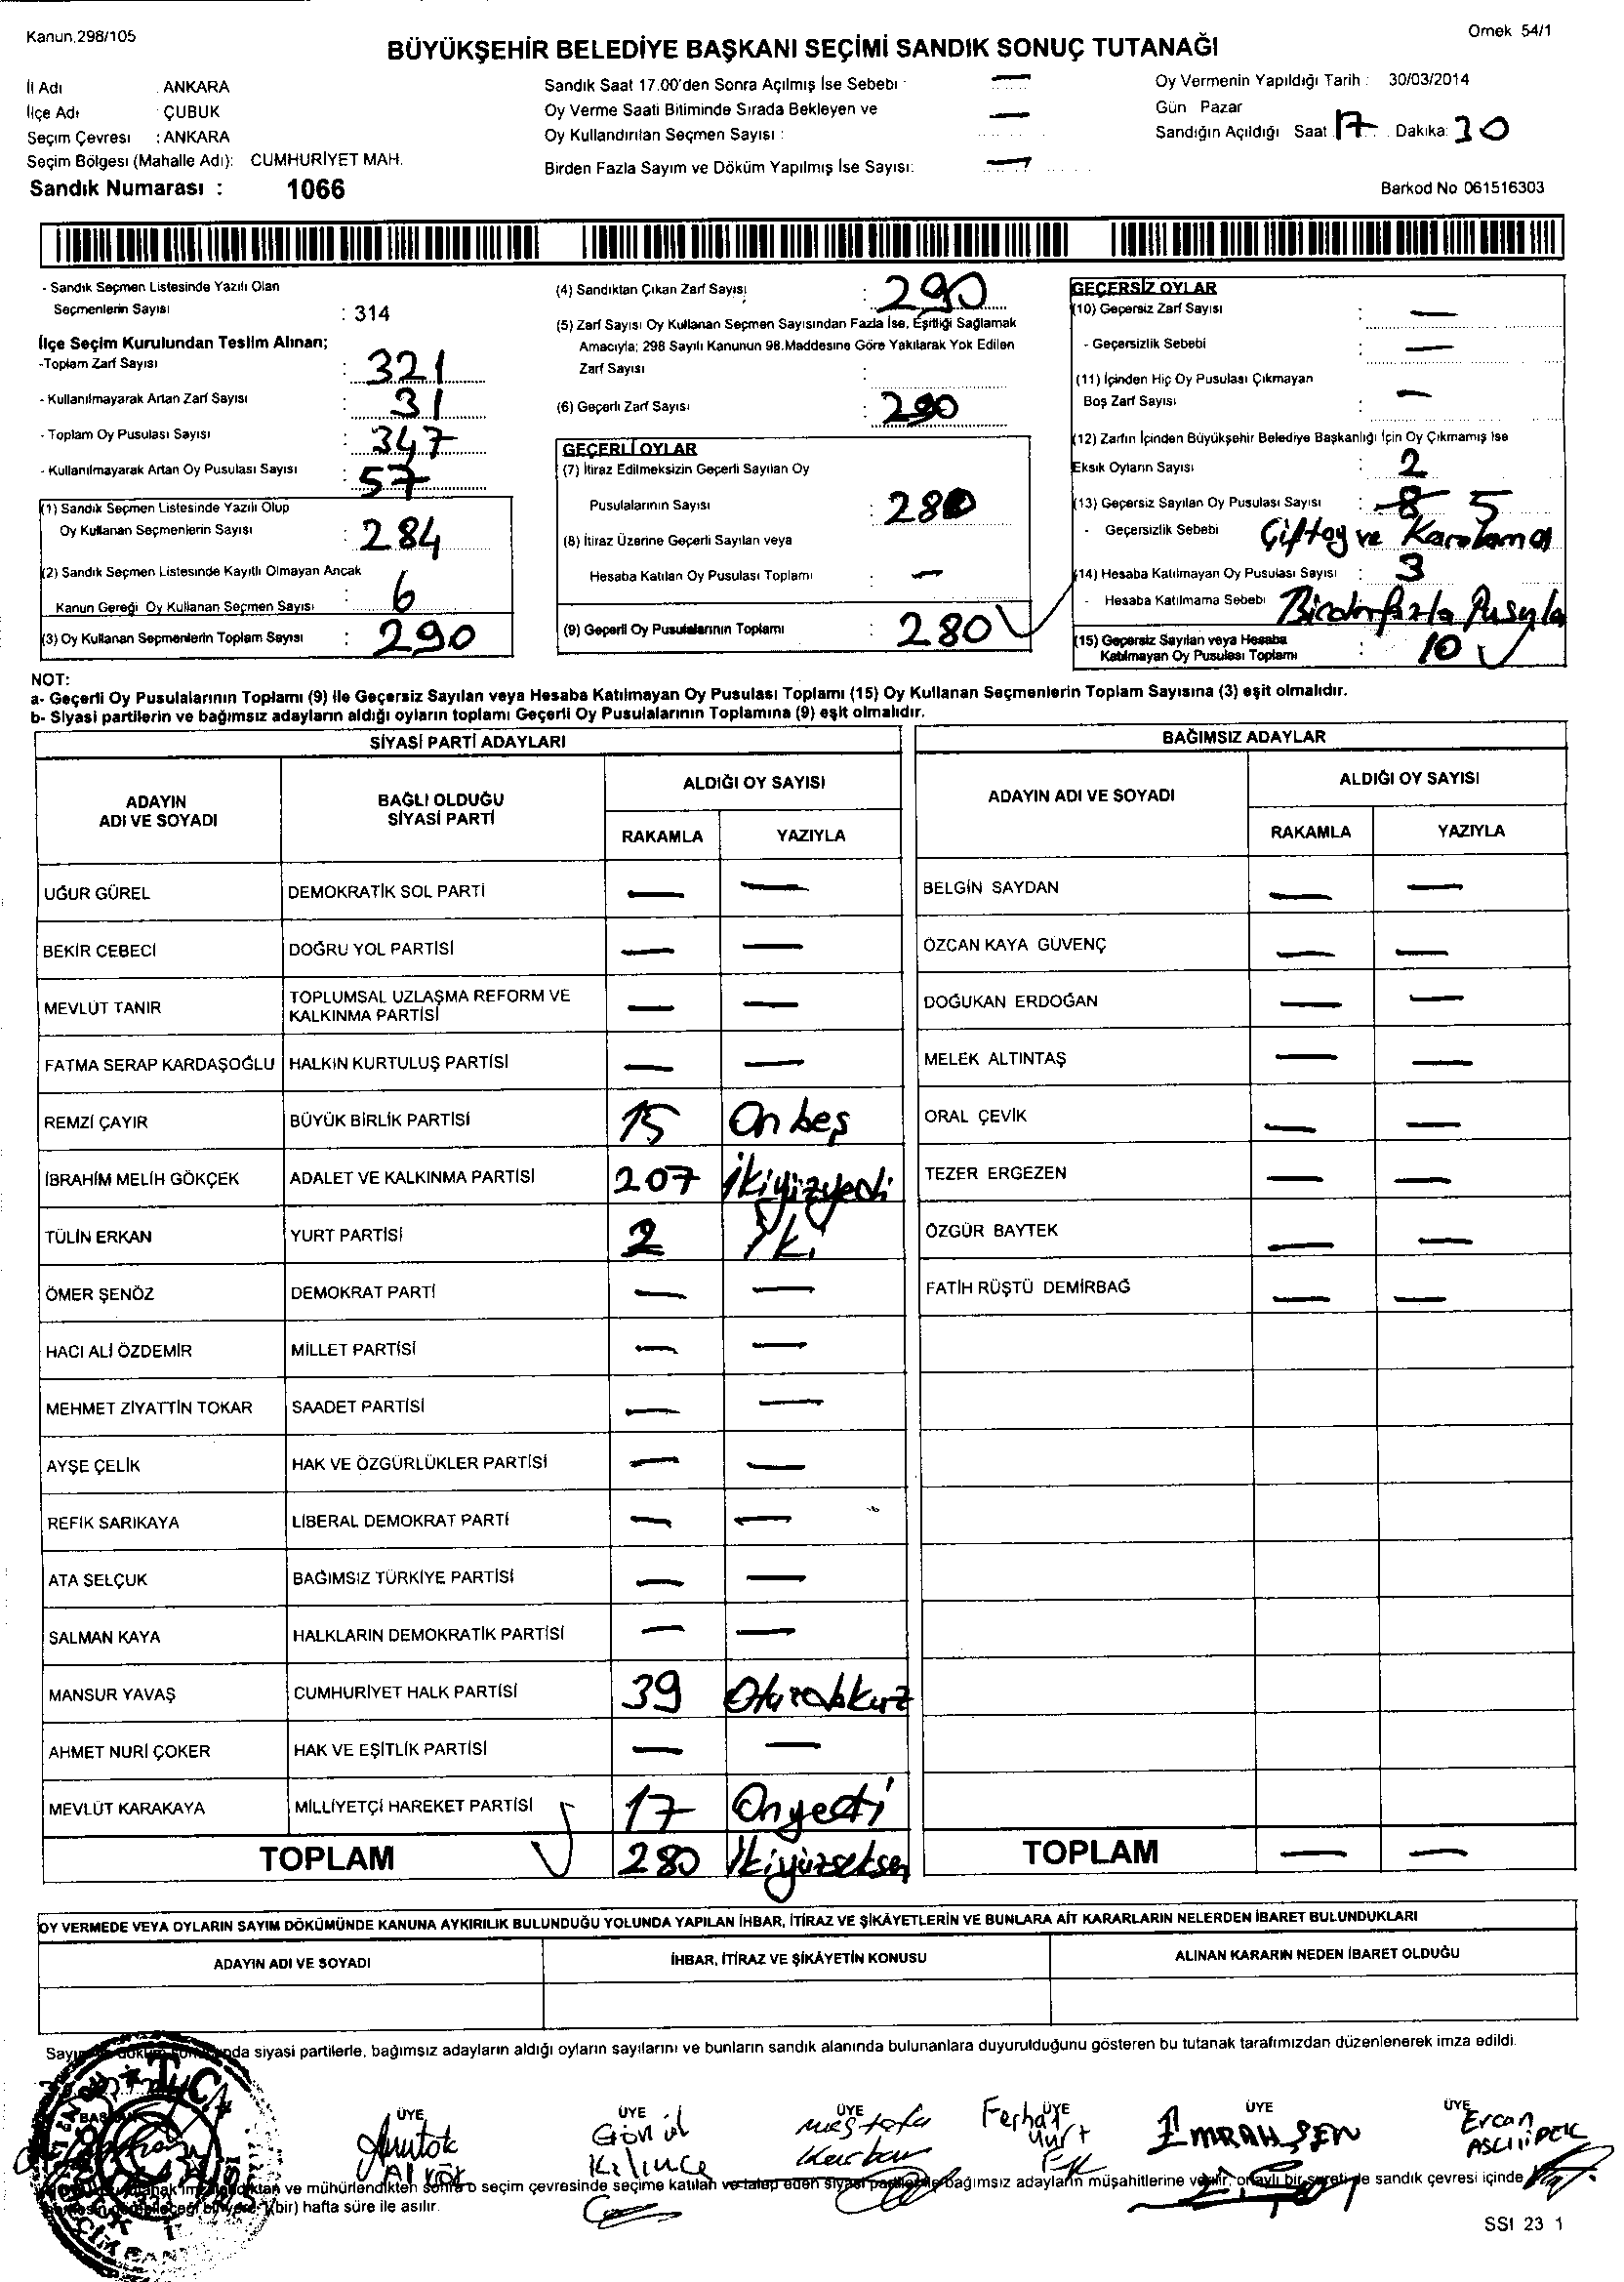 Kanun.298/105
Örnek 54/1
BÜYÜKŞEHİR BELEDİYE BAŞKANI SEÇİMİ SANDIK SONUÇ TUTANAĞI
İl Adı : ANKARA
İlçe Adı : ÇUBUK
Seçim Çevresi : ANKARA
Seçim Bölgesi (Mahalle Adı): CUMHURİYET MAH.
Sandık Numarası : 1066
Sandık Saat 17.00'den Sonra Açılmış İse Sebebi : —
Oy Verme Saati Bitiminde Sırada Bekleyen ve
Oy Kullandırılan Seçmen Sayısı : —
Birden Fazla Sayım ve Döküm Yapılmış İse Sayısı: —
Oy Vermenin Yapıldığı Tarih : 30/03/2014
Gün Pazar
Sandığın Açıldığı Saat 17 Dakika: 30
Barkod No 061516303
- Sandık Seçmen Listesinde Yazılı Olan
Seçmenlerin Sayısı : 314
İlçe Seçim Kurulundan Teslim Alınan;
-Toplam Zarf Sayısı : 321
- Kullanılmayarak Artan Zarf Sayısı : 31
- Toplam Oy Pusulası Sayısı : 347
- Kullanılmayarak Artan Oy Pusulası Sayısı : 57
(1) Sandık Seçmen Listesinde Yazılı Olup
Oy Kullanan Seçmenlerin Sayısı : 284
(2) Sandık Seçmen Listesinde Kayıtlı Olmayan Ancak
Kanun Gereği Oy Kullanan Seçmen Sayısı : 6
(3) Oy Kullanan Seçmenlerin Toplam Sayısı : 290
(4) Sandıktan Çıkan Zarf Sayısı : 290
(5) Zarf Sayısı Oy Kullanan Seçmen Sayısından Fazla İse, Eşitliği Sağlamak
Amacıyla; 298 Sayılı Kanunun 98.Maddesine Göre Yakılarak Yok Edilen
Zarf Sayısı :
(6) Geçerli Zarf Sayısı : 290
GEÇERLİ OYLAR
(7) İtiraz Edilmeksizin Geçerli Sayılan Oy
Pusulalarının Sayısı : 280
(8) İtiraz Üzerine Geçerli Sayılan veya
Hesaba Katılan Oy Pusulası Toplamı : —
(9) Geçerli Oy Pusulalarının Toplamı : 280
GEÇERSİZ OYLAR
(10) Geçersiz Zarf Sayısı : —
- Geçersizlik Sebebi : —
(11) İçinden Hiç Oy Pusulası Çıkmayan
Boş Zarf Sayısı : —
(12) Zarfın İçinden Büyükşehir Belediye Başkanlığı İçin Oy Çıkmamış İse
Eksik Oyların Sayısı : 2
(13) Geçersiz Sayılan Oy Pusulası Sayısı : 8 5
- Geçersizlik Sebebi Çiftoy ve Karalama
(14) Hesaba Katılmayan Oy Pusulası Sayısı : 3
- Hesaba Katılmama Sebebi Birden fazla Pusula
(15) Geçersiz Sayılan veya Hesaba
Katılmayan Oy Pusulası Toplamı : 10
NOT:
a- Geçerli Oy Pusulalarının Toplamı (9) ile Geçersiz Sayılan veya Hesaba Katılmayan Oy Pusulası Toplamı (15) Oy Kullanan Seçmenlerin Toplam Sayısına (3) eşit olmalıdır.
b- Siyasi partilerin ve bağımsız adayların aldığı oyların toplamı Geçerli Oy Pusulalarının Toplamına (9) eşit olmalıdır.
SİYASİ PARTİ ADAYLARI
ADAYIN ADI VE SOYADI BAĞLI OLDUĞU SİYASİ PARTİ ALDIĞI OY SAYISI
RAKAMLA YAZIYLA
UĞUR GÜREL DEMOKRATİK SOL PARTİ — —
BEKİR CEBECİ DOĞRU YOL PARTİSİ — —
MEVLÜT TANIR TOPLUMSAL UZLAŞMA REFORM VE KALKINMA PARTİSİ — —
FATMA SERAP KARDAŞOĞLU HALKIN KURTULUŞ PARTİSİ — —
REMZİ ÇAYIR BÜYÜK BİRLİK PARTİSİ 15 Onbeş
İBRAHİM MELİH GÖKÇEK ADALET VE KALKINMA PARTİSİ 207 İkiyüzyedi
TÜLİN ERKAN YURT PARTİSİ 2 İki
ÖMER ŞENÖZ DEMOKRAT PARTİ — —
HACI ALİ ÖZDEMİR MİLLET PARTİSİ — —
MEHMET ZİYATTİN TOKAR SAADET PARTİSİ — —
AYŞE ÇELİK HAK VE ÖZGÜRLÜKLER PARTİSİ — —
REFİK SARIKAYA LİBERAL DEMOKRAT PARTİ — —
ATA SELÇUK BAĞIMSIZ TÜRKİYE PARTİSİ — —
SALMAN KAYA HALKLARIN DEMOKRATİK PARTİSİ — —
MANSUR YAVAŞ CUMHURİYET HALK PARTİSİ 39 Otuzdokuz
AHMET NURİ ÇOKER HAK VE EŞİTLİK PARTİSİ — —
MEVLÜT KARAKAYA MİLLİYETÇİ HAREKET PARTİSİ 17 Onyedi
TOPLAM 280 İkiyüzseksen
BAĞIMSIZ ADAYLAR
ADAYIN ADI VE SOYADI ALDIĞI OY SAYISI
RAKAMLA YAZIYLA
BELGİN SAYDAN — —
ÖZCAN KAYA GÜVENÇ — —
DOĞUKAN ERDOĞAN — —
MELEK ALTINTAŞ — —
ORAL ÇEVİK — —
TEZER ERGEZEN — —
ÖZGÜR BAYTEK — —
FATİH RÜŞTÜ DEMİRBAĞ — —
TOPLAM — —
OY VERMEDE VEYA OYLARIN SAYIM DÖKÜMÜNDE KANUNA AYKIRILIK BULUNDUĞU YOLUNDA YAPILAN İHBAR, İTİRAZ VE ŞİKÂYETLERİN VE BUNLARA AİT KARARLARIN NELERDEN İBARET BULUNDUKLARI
ADAYIN ADI VE SOYADI İHBAR, İTİRAZ VE ŞİKÂYETİN KONUSU ALINAN KARARIN NEDEN İBARET OLDUĞU
siyasi partilerle, bağımsız adayların aldığı oyların sayılarını ve bunların sandık alanında bulunanlara duyurulduğunu gösteren bu tutanak tarafımızdan düzenlenerek imza edildi.
ÜYE ÜYE ÜYE ÜYE ÜYE ÜYE
Gönül Kılınç
Ferhat Yurt
EMRAH ŞEN
Ercan
ve mühürlendikten sonra o seçim çevresinde seçime katılan ve talep eden siyasi bağımsız adayların müşahitlerine sandık çevresi içinde
(bir) hafta süre ile asılır.
SSI 23 1